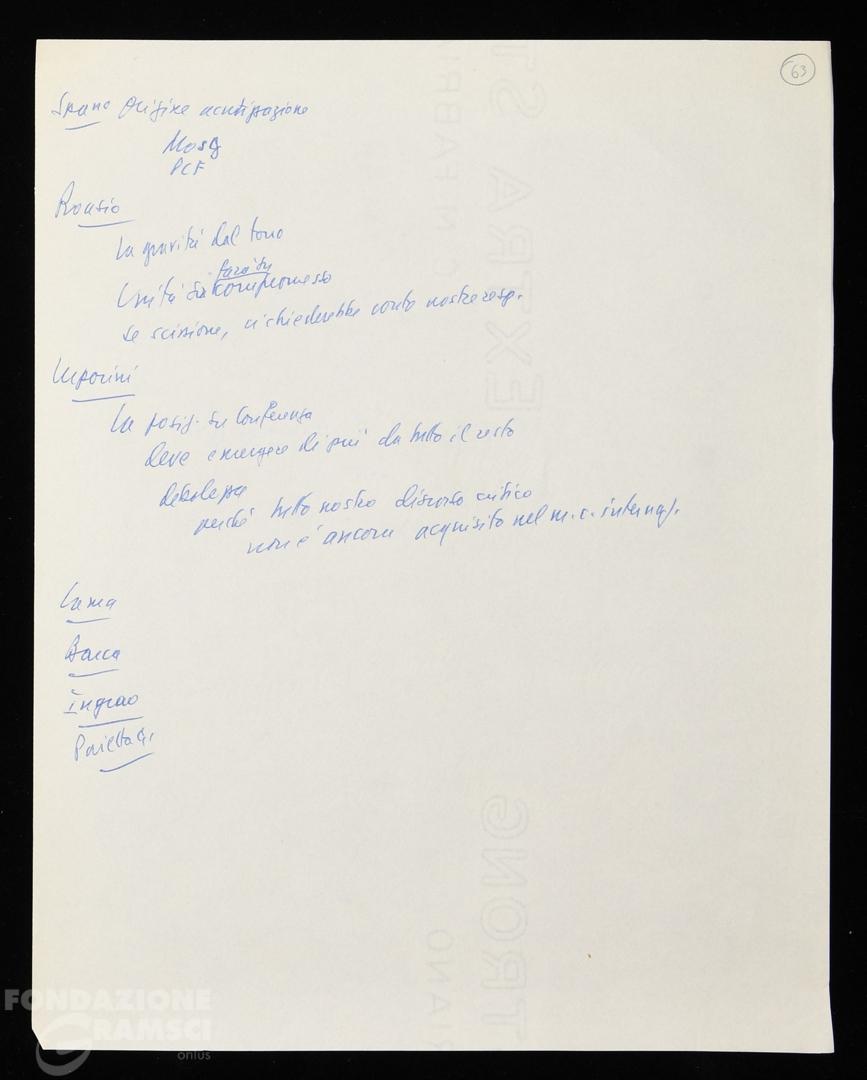 63
Spano Origine acutizzazione
Mosca
PCF
Roasio
La gravità del tono
sarà su
Unità su compromesso
Se scissione, ci chiederebbe conto nostre resp.
Luporini
La posiz. su Conferenza
deve emergere di più da tutto il resto
debolezza
perché tutto nostro discorso critico
non è ancora acquisito nel m.c. internaz.
Lama
Barca
Ingrao
Pajetta G.
EXTRA STRONG
FONDAZIONE
GRAMSCI
onlus